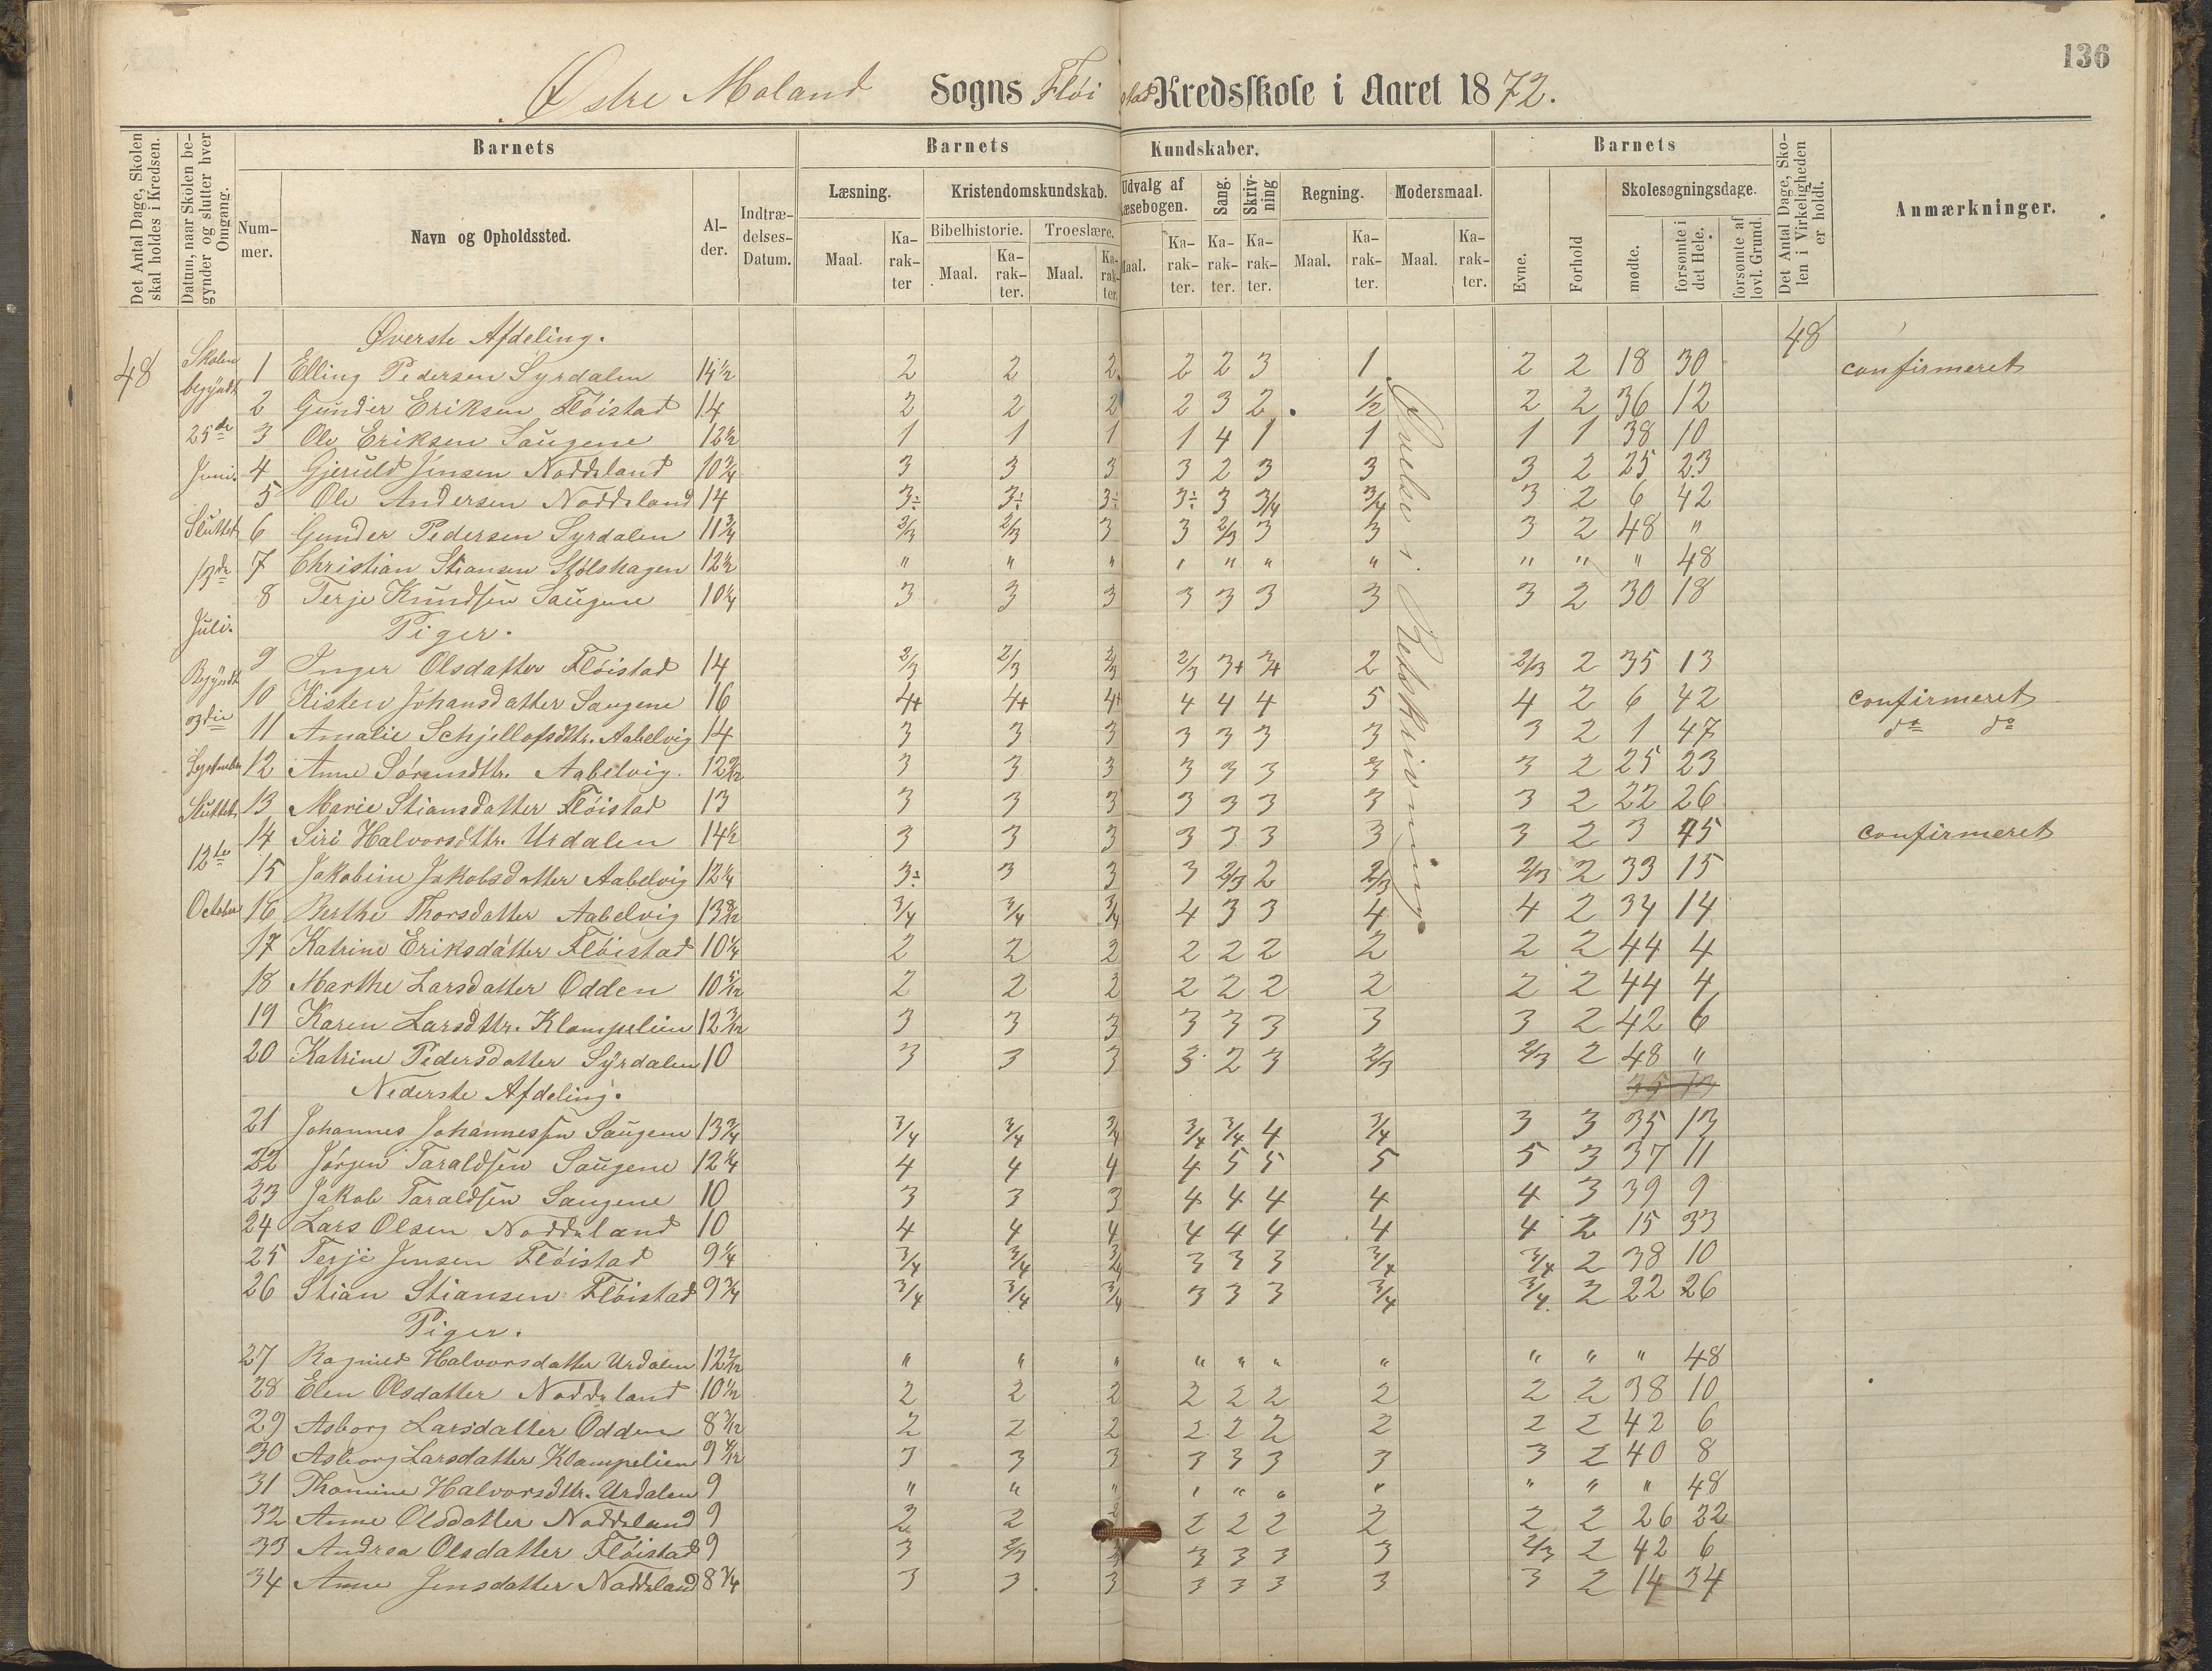 136
Østre Moland Sogns Fløistad Kredsskole i Aaret 1872.
Det Antal Dage, Skolen skal holdes i Kredsen.
Datum, naar Skolen begynder og slutter hver Omgang.
Barnets
Nummer.
Navn og Opholdssted.
Alder.
Indtrædelses-Datum.
Barnets Kundskaber.
Læsning.
Maal. Karakter
Kristendomskundskab.
Bibelhistorie. Troeslære.
Maal. Karakter. Maal. Karakter.
Udvalg af Læsebogen.
Maal. Karakter.
Sang. Karakter.
Skrivning Karakter.
Regning.
Maal. Karakter.
Modersmaal.
Maal. Karakter.
Barnets
Evne.
Forhold
Skolesøgningsdage.
mødte.
forsømte i det Hele.
forsømte af lovl. Grund.
Det Antal Dage, Skolen i Virkeligheden er holdt.
Anmærkninger.
48
Skolen begyndt 25de Juni. Sluttet 13de Juli. Begyndt 3die September Sluttet 12te October
48
Øvelse i Retskrivning
Øverste Afdeling.
1 Elling Pedersen Syrdalen 14 1/2 2 2 2 2 2 3 1 2 2 18 30 confirmeret
2 Gunder Eriksen Fløistad 14 2 2 2 2 3 2 1/2 2 2 36 12
3 Ole Eriksen Saugene 12 1/2 1 1 1 1 4 1 1 1 1 38 10
4 Gjeruld Jensen Noddeland 10 3/4 3 3 3 3 2 3 3 3 2 25 23
5 Ole Andersen Noddeland 14 3÷ 3÷ 3÷ 3÷ 3 3/4 3/4 3 2 6 42
6 Gunder Pedersen Syrdalen 11 3/4 2/3 2/3 3 3 2/3 3 3 3 2 48 "
7 Christian Stiansen Stølshagen 12 1/2 " " " " " " " " " " 48
8 Terje Knudsen Saugene 10 1/4 3 3 3 3 3 3 3 3 2 30 18
Piger.
9 Inger Olsdatter Fløistad 14 2/3 2/3 2/3 2/3 3+ 3+ 2 2/3 2 35 13
10 Kisten Johansdatter Saugene 16 4+ 4+ 4+ 4 4 4 5 4 2 6 42 confirmeret
11 Amalie Schjellofsdtr. Aabelvig 14 3 3 3 3 3 3 3 3 2 1 47 do do
12 Anne Sørensdttr. Aabelvig. 12 3 3 3 3 3 3 3 3 2 25 23
13 Marie Stiansdatter Fløistad 13 3 3 3 3 3 3 3 3 2 22 26
14 Siri Halvorsdttr. Urdalen 14 1/2 3 3 3 3 3 3 3 3 2 3 45 confirmeret
15 Jakobine Jakobsdatter Aabelvig 12 1/4 3÷ 3 3 3 2/3 2 2/3 2/3 2 33 15
16 Berthe Thorsdatter Aabelvig 13 8/12 3/4 3/4 3/4 4 3 3 4 4 2 34 14
17 Katrine Eriksdatter Fløistad 10 1/4 2 2 2 2 2 2 2 2 2 44 4
18 Marthe Larsdatter Odden 10 5/12 2 2 2 2 2 2 2 2 2 44 4
19 Karen Larsdttr. Klampelien 12 3/12 3 3 3 3 3 3 3 3 2 42 6
20 Katrine Pedersdatter Syrdalen 10 3 3 3 3 2 3 2/3 2/3 2 48 "
35 13
Nederste Afdeling.
21 Johannes Johannessen Saugene 13 3/4 3/4 3/4 3/4 3/4 3/4 4 3/4 3 3 35 13
22 Jørgen Taraldsen Saugene 12 1/4 4 4 4 4 5 5 5 5 3 37 11
23 Jakob Taraldsen Saugene 10 3 3 3 4 4 4 4 4 3 39 9
24 Lars Olsen Noddeland 10 4 4 4 4 4 4 4 4 2 15 33
25 Terje Jensen Fløistad 9 1/4 3/4 3/4 3/4 3 3 3 3/4 3/4 2 38 10
26 Stian Stiansen Fløistad 9 3/4 3/4 3/4 3/4 3 3 3 3/4 3/4 2 22 26
Piger.
27 Ragnild Halvorsdatter Urdalen 12 " " " " " " " " " " 48
28 Elen Olsdatter Noddeland 10 1/2 2 2 2 2 2 2 2 2 2 38 10
29 Asborg Larsdatter Odden 8 2 2 2 2 2 2 2 2 2 42 6
30 Asborg Larsdatter Klampelien 9 3 3 3 3 3 3 3 3 2 40 8
31 Thomine Halvorsdttr. Urdalen 9 " " " " " " " " " " 48
32 Anne Olsdatter Noddeland 9 2 2 2 2 2 2 2 2 2 26 22
33 Andrea Olsdatter Fløistad 9 3 2/3 3 3 3 3 3 2/3 2 42 6
34 Anne Jensdatter Noddeland 8 3/4 3 3 3 3 3 3 3 3 2 14 34